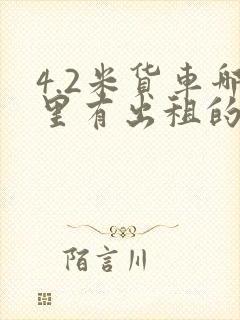 4.2米货車哪
里有出租的
陌言川